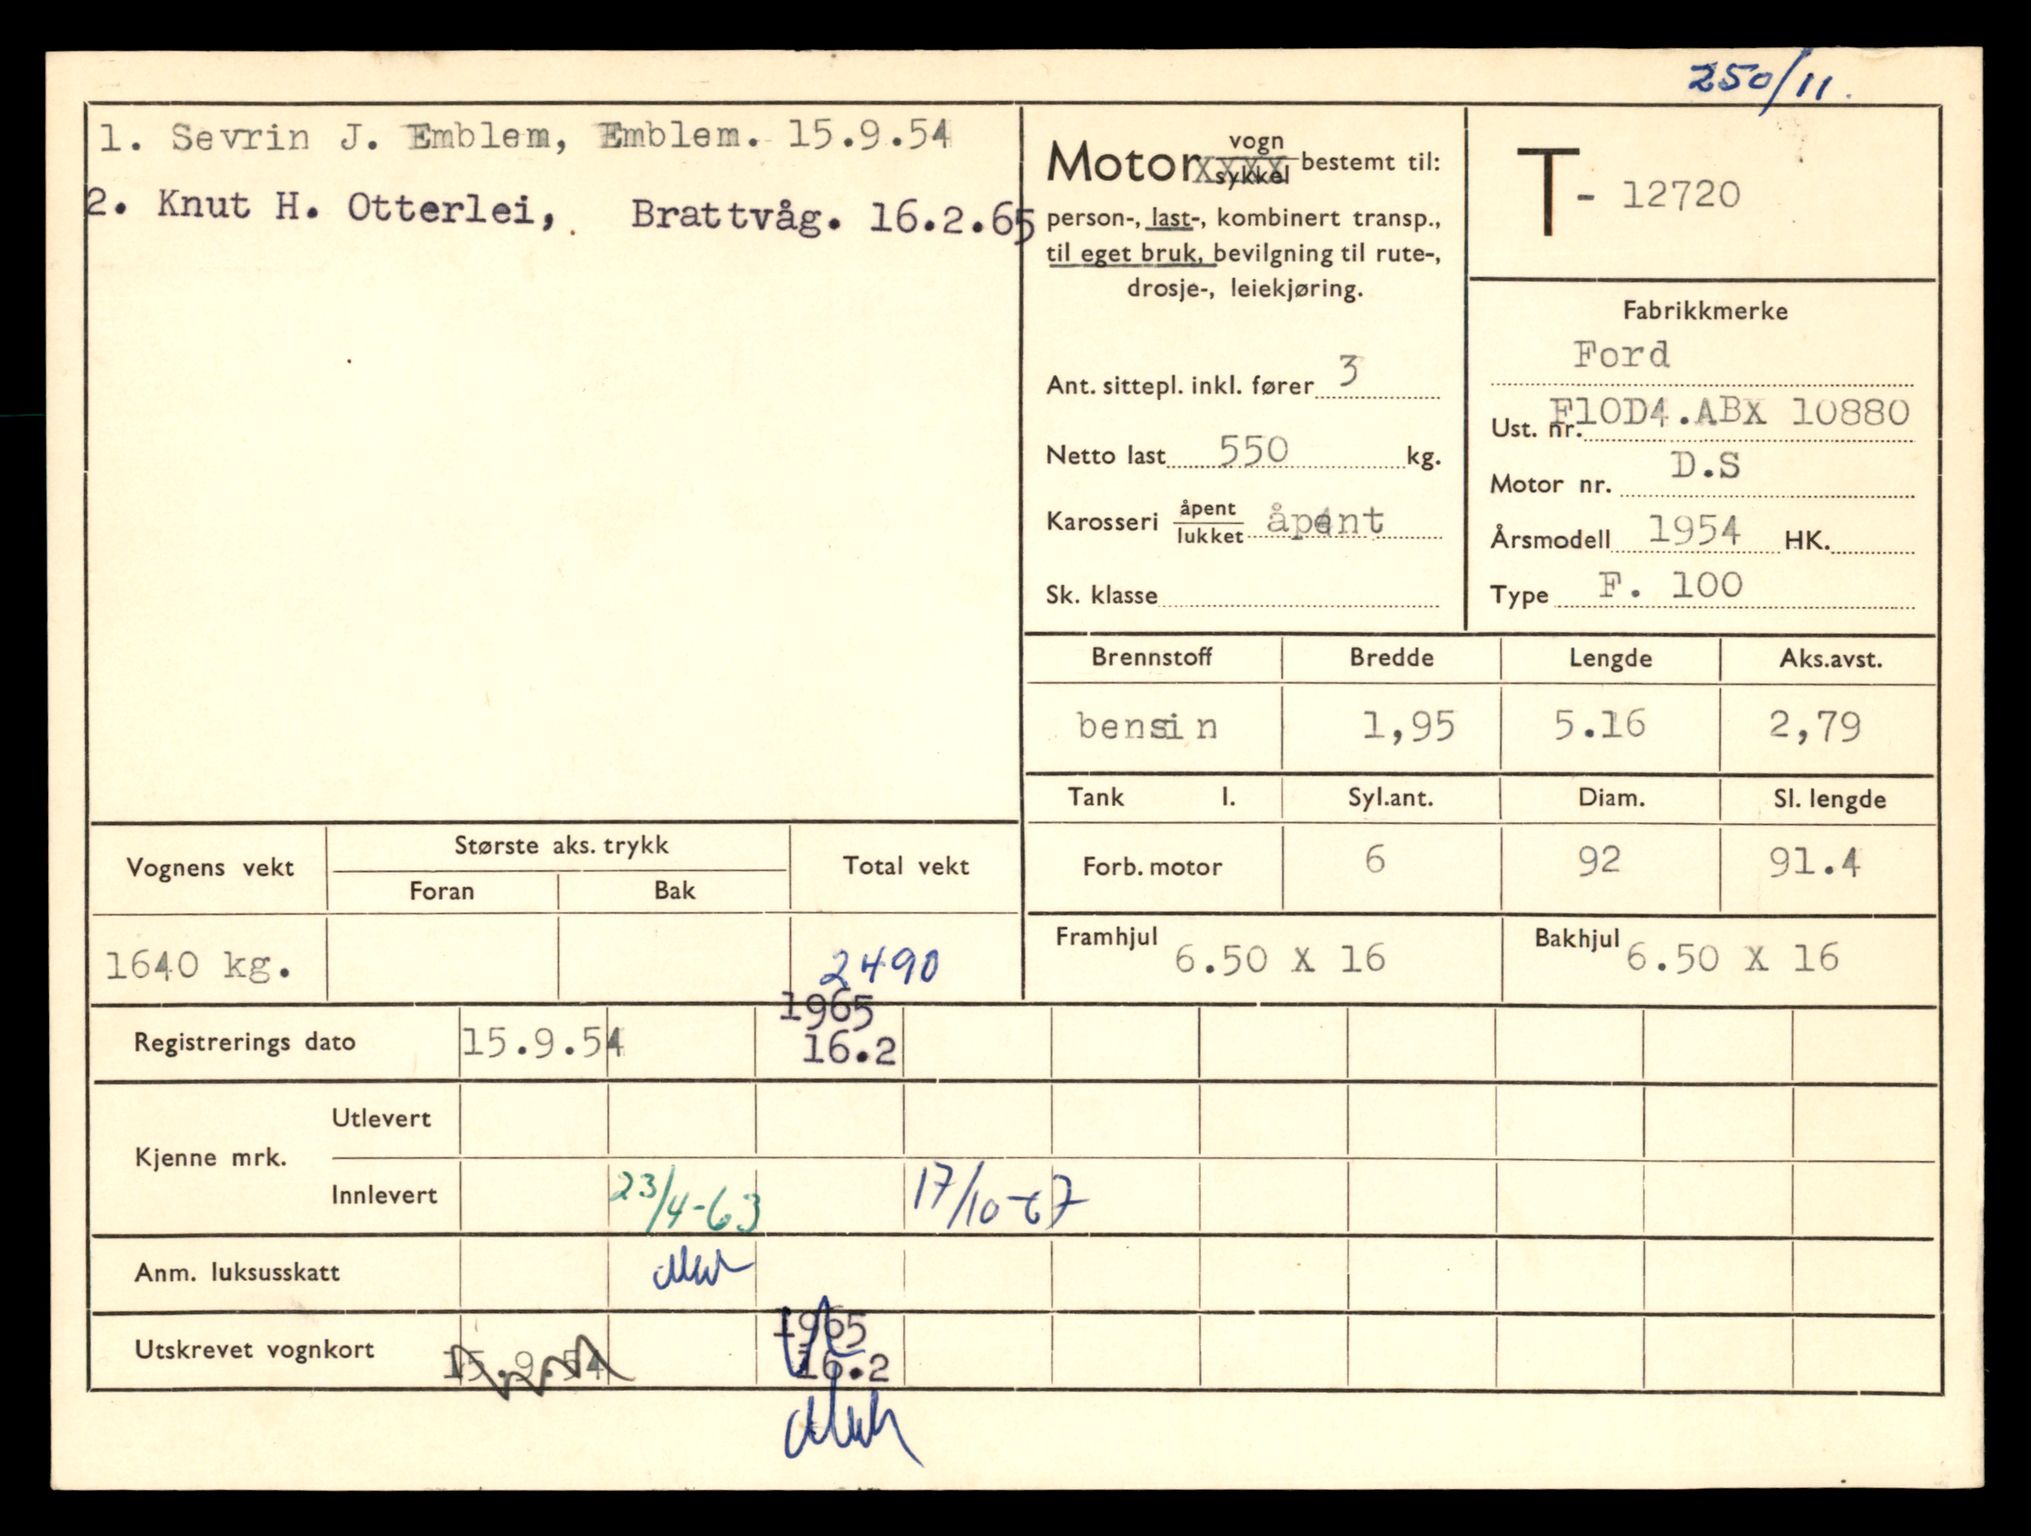 250/11.
1. Sevrin J. Emblem, Emblem. 15.9.54
2. Knut H. Otterlei, Brattvåg. 16.2.65
Motor vogn sykkel bestemt til:
person-, last-, kombinert transp.,
til eget bruk, bevilgning til rute-,
drosje-, leiekjøring.
Ant. sittepl. inkl. fører 3
Netto last 550 kg.
Karosseri åpent lukket åpent
Sk. klasse
T- 12720
Fabrikkmerke
Ford
Ust. nr. F10D4.ABX 10880
Motor nr. D.S
Årsmodell 1954 HK.
Type F. 100
Brennstoff Bredde Lengde Aks.avst.
bensin 1,95 5.16 2,79
Tank l. Syl.ant. Diam. Sl. lengde
Forb. motor 6 92 91.4
Framhjul 6.50 X 16 Bakhjul 6.50 X 16
Vognens vekt Største aks. trykk Total vekt
Foran Bak
1640 kg. 2490
1965
Registrerings dato 15.9.54 16.2
Kjenne mrk.
Utlevert
Innlevert 23/4-63 17/10-67
Anm. luksusskatt
1965
Utskrevet vognkort 15.9.54 16.2